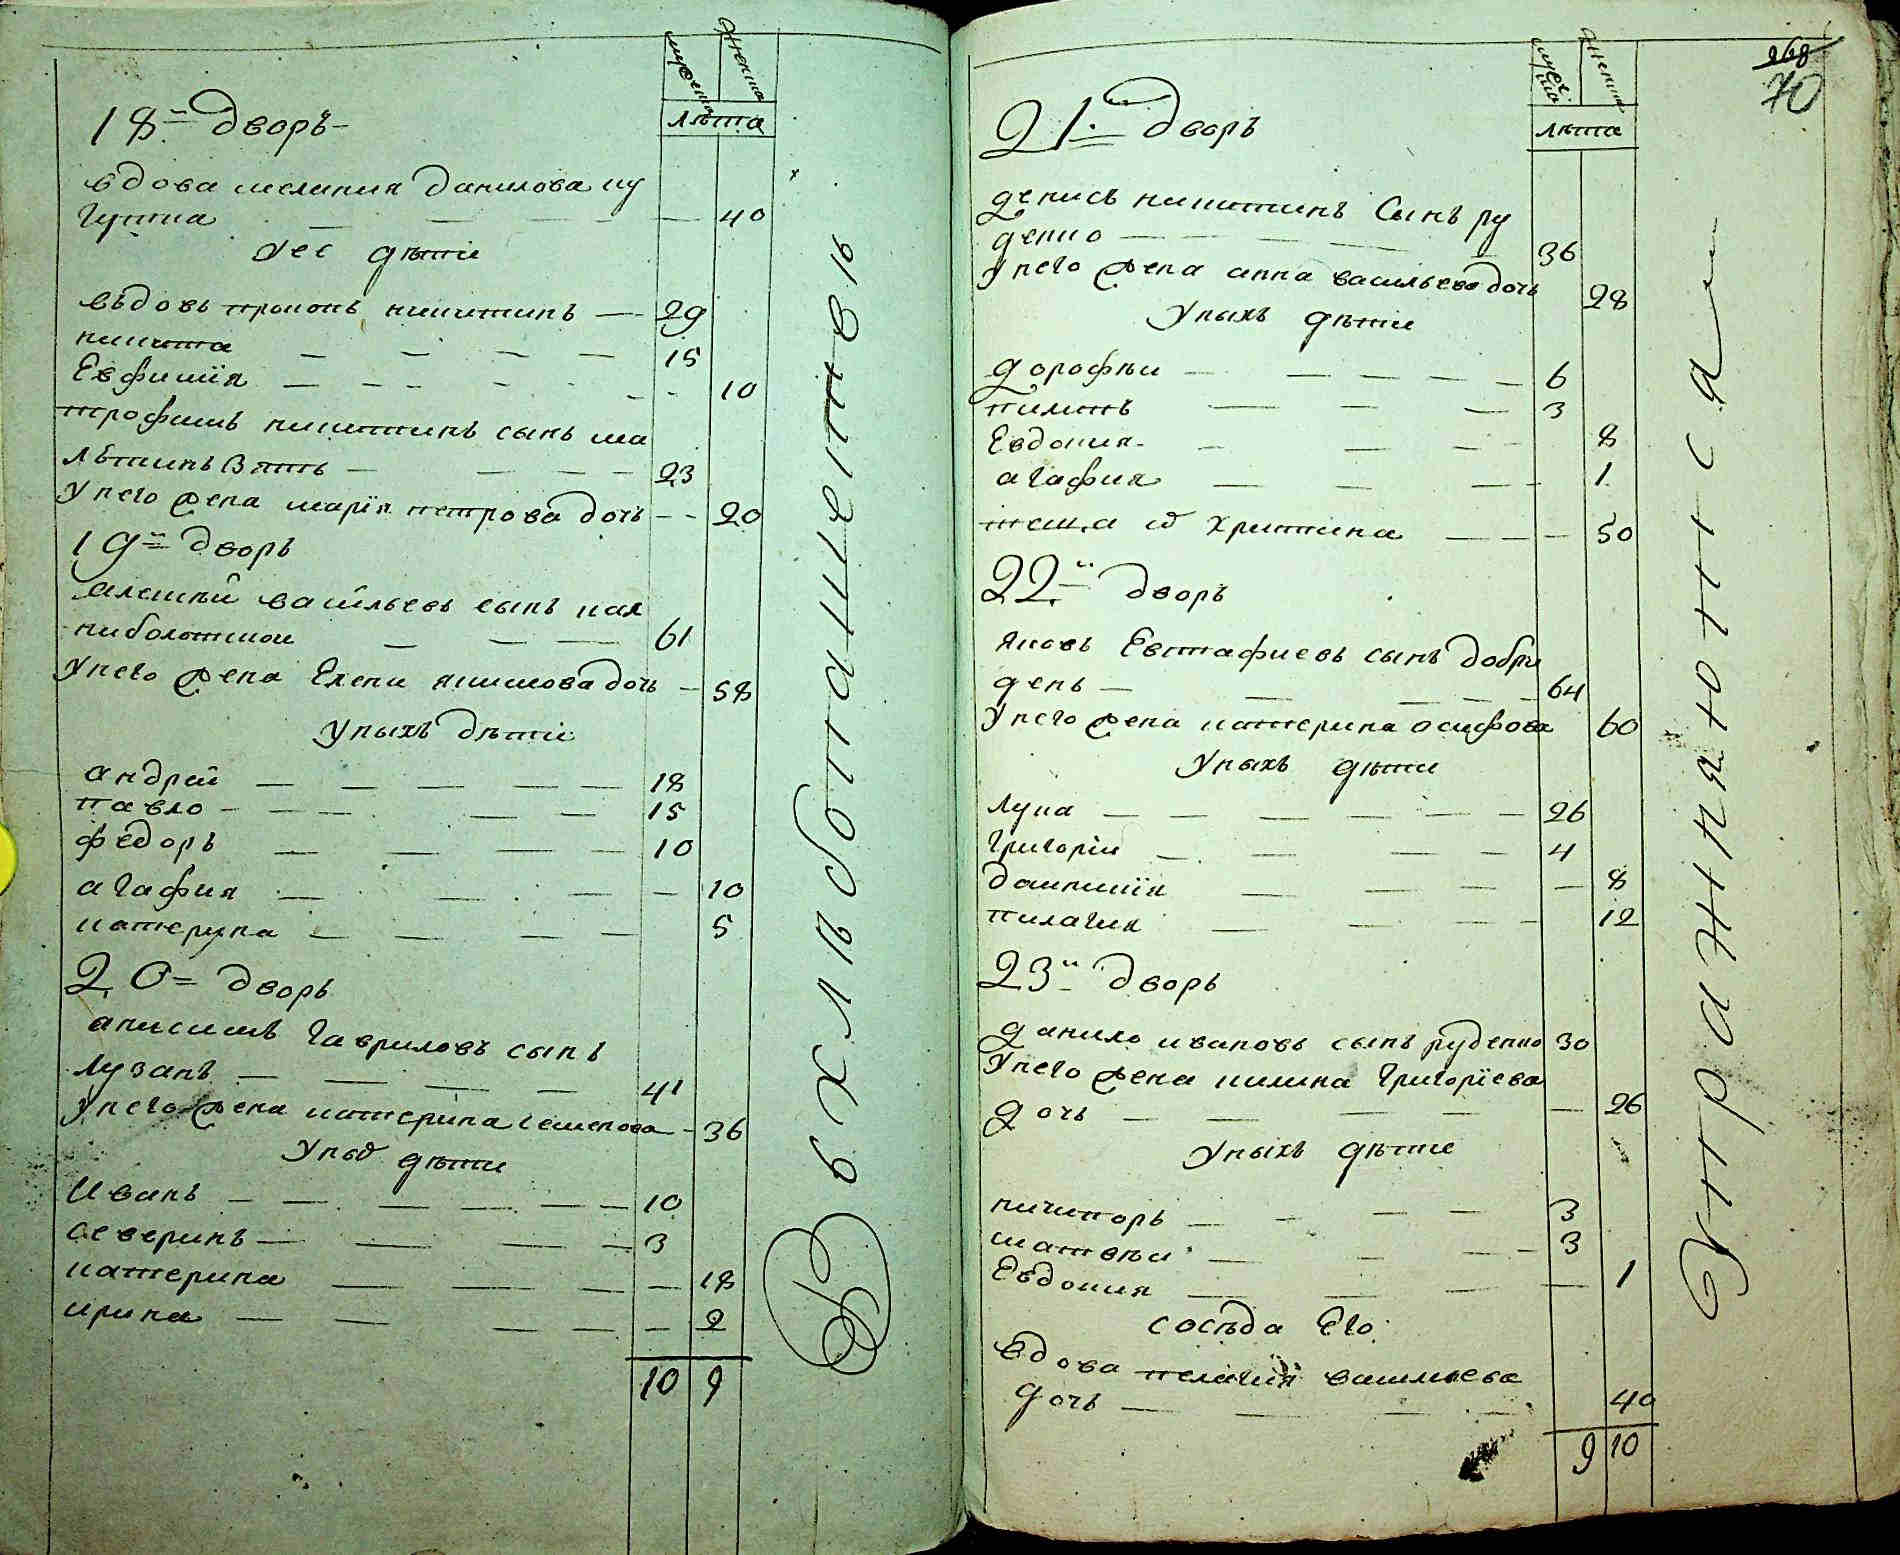 мужеска
женска
лѣта
18й дворъ
вдова мелания данилова му
гутка 40
у ее дѣти
въдовъ прокопъ никитинъ 29
никита 15
Евфимїя 10
трофимъ никитинъ сынъ ма
лѣтинъ зять 23
у него жена марїя петрова дочь 20
19й дворъ
алексѣй васильевъ сынъ кал
ниболотской 61
у него жена Елена якимова дочь 58
у ныхъ дѣти
андрей 18
павло 15
федоръ 10
агафия 10
катерина 5
20 дворъ
анисимъ гавриловъ сынъ
лузанъ 41
у него жена катерина семенова 36
у ныхъ дѣти
Иванъ 10
северинъ 3
катерина 18
ирина 2
10 9
В хлѣбопашенѣ
268
70
мужеска
женска
лѣта
21й дворъ
денисъ никитинъ сынъ ру
денко 36
у него жена анна васильева дочь 28
у ныхъ дѣти
дорофѣи 6
пилипъ 3
Евдокия 8
агафия 1
теща его христина 50
22й дворъ
яковъ Евтафиевъ сынъ добри
день 64
у него жена катерина осифова 60
у ныхъ дѣти
лука 26
григорїи 4
домникїя 8
пилагия 12
23й дворъ
данило ивановъ сынъ руденко 30
у него жена килина григорїева
дочь 26
у ныхъ дѣти
ничипоръ 3
матвѣи 3
Евдокия 1
сосѣда Его
вдова пелагия васильева
дочь 40
9 10
упражняются